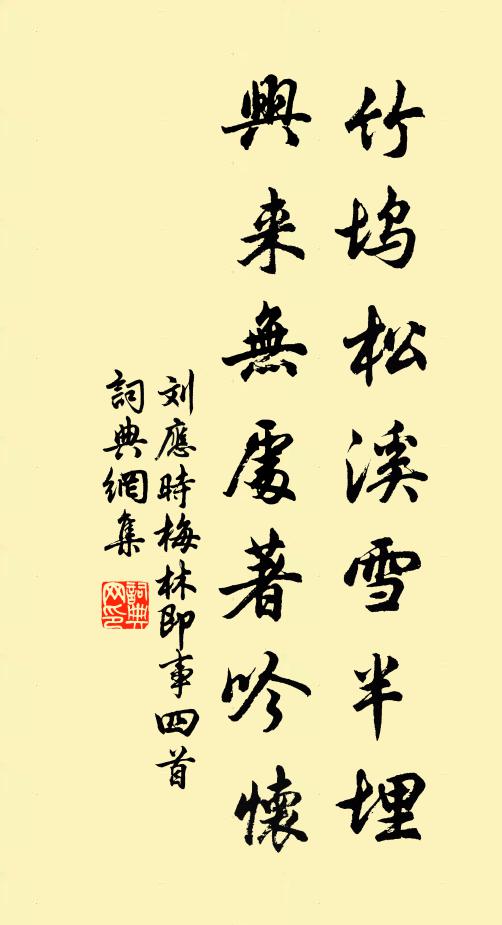 竹坞松溪雪半埋
興来無處著吟懷
刘應時梅林即事四首
詞典網集
詞典網印